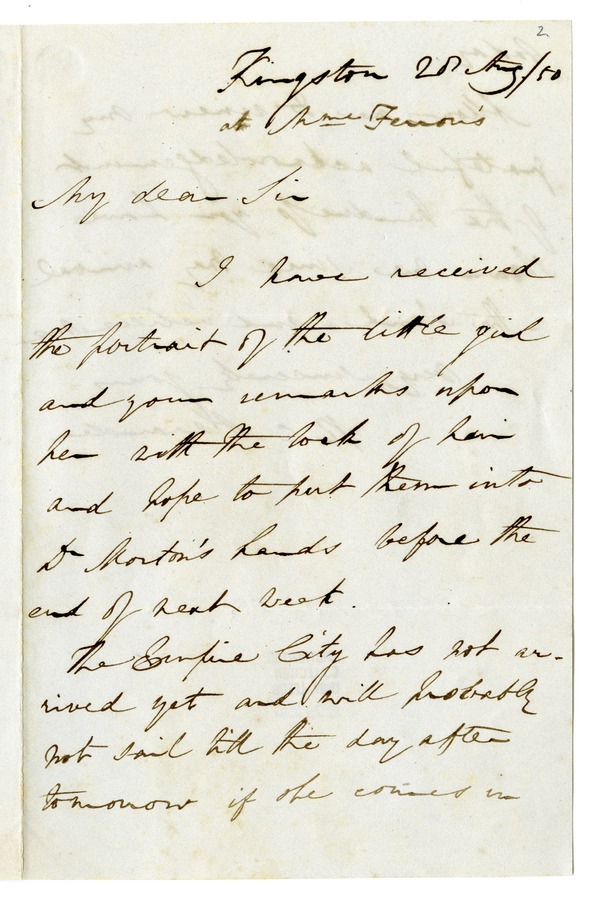 2
Kingston 28 Aug/50
at Mme Ferron's
My dear Sir
I have received
the portrait of the little girl
and your remarks upon
her with the lock of hair
and hope to put them into
Dr Morton's hands before the
end of next week.
The Empire City has not ar-
rived yet and will probably
not sail till the day after
tomorrow if she comes in